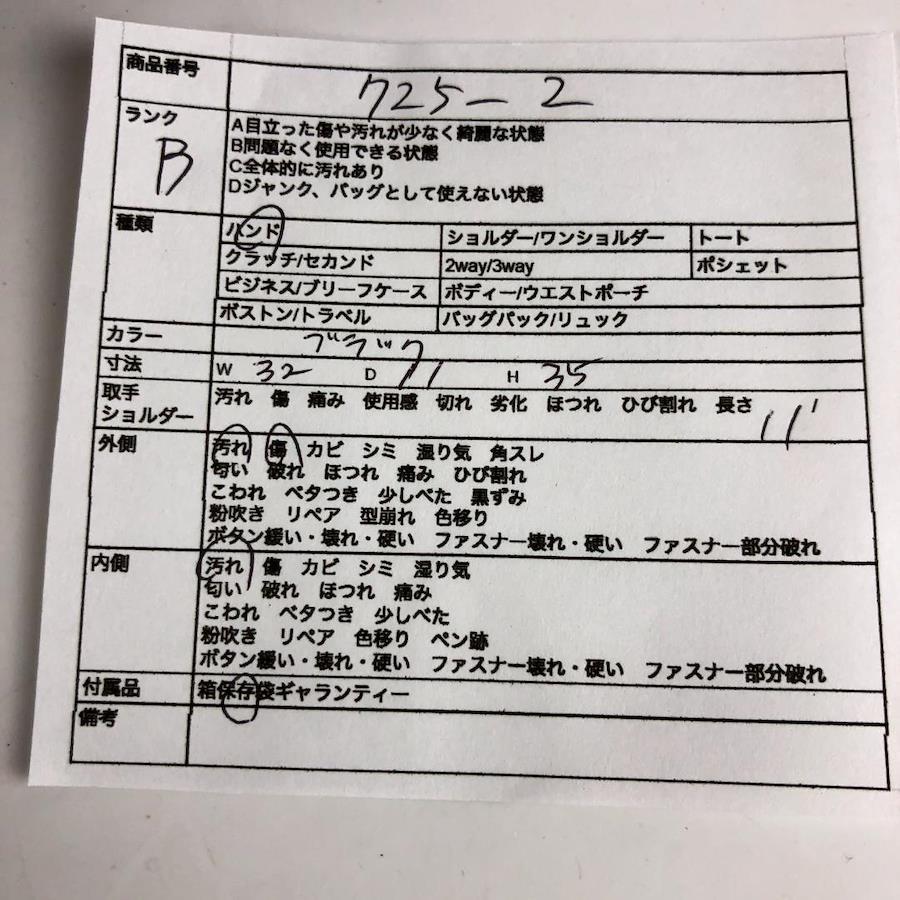 商品番号 725-2
ランク B
A目立った傷や汚れが少なく綺麗な状態
B問題なく使用できる状態
C全体的に汚れあり
Dジャンク、バッグとして使えない状態
種類 ハンド ショルダー/ワンショルダー トート
クラッチ/セカンド 2way/3way ポシェット
ビジネス/ブリーフケース ボディー/ウエストポーチ
ボストン/トラベル バッグパック/リュック
カラー ブラック
寸法 W 32 D 11 H 35
取手 汚れ 傷 痛み 使用感 切れ 劣化 ほつれ ひび割れ 長さ
ショルダー 11
外側 汚れ 傷 カビ シミ 湿り気 角スレ
匂い 破れ ほつれ 痛み ひび割れ
こわれ ベタつき 少しべた 黒ずみ
粉吹き リペア 型崩れ 色移り
ボタン緩い・壊れ・硬い ファスナー壊れ・硬い ファスナー部分破れ
内側 汚れ 傷 カビ シミ 湿り気
匂い 破れ ほつれ 痛み
こわれ ベタつき 少しべた
粉吹き リペア 色移り ペン跡
ボタン緩い・壊れ・硬い ファスナー壊れ・硬い ファスナー部分破れ
付属品 箱保存袋ギャランティー
備考